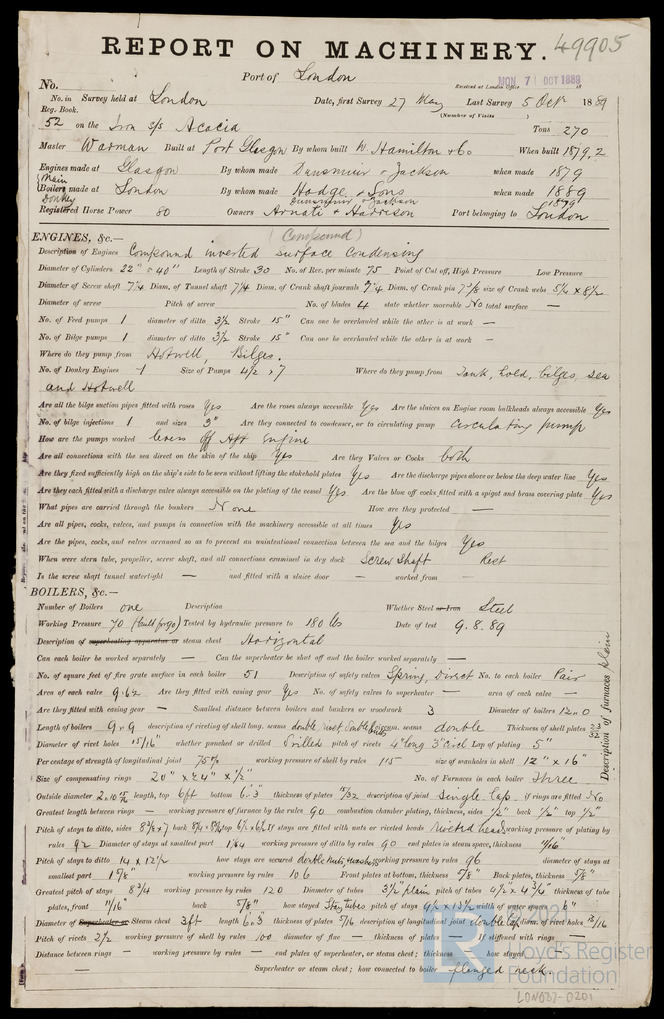 REPORT ON MACHINERY. 49905
Port of London
Received at London Office MON 7 OCT 1889 18
No.
No. in Survey held at London Date, first Survey 27 May Last Survey 5 Oct 1889
Reg. Book. (Number of Visits
52 on the Iron S/S Acacia Tons 270
Master Warman Built at Port Glasgow By whom built W. Hamilton & Co When built 1879.2
Engines made at Glasgow By whom made Dunsmuir & Jackson when made 1879
Main
Boilers made at London By whom made Hodge & Sons when made 1889
Donkey Dunsmuir & Jackson 1879
Registered Horse Power 80 Owners Arnati & Harrison Port belonging to London
ENGINES, &c.— (Compound)
Description of Engines Compound inverted surface condensing
Diameter of Cylinders 22" & 40" Length of Stroke 30 No. of Rev. per minute 75 Point of Cut off, High Pressure Low Pressure
Diameter of Screw shaft 7 1/4 Diam. of Tunnel shaft 7 1/4 Diam. of Crank shaft journals 7 1/4 Diam. of Crank pin 7 3/8 size of Crank webs 5 1/4 x 8 1/2
Diameter of screw Pitch of screw No. of blades 4 state whether moveable No total surface —
No. of Feed pumps 1 diameter of ditto 3 1/2 Stroke 15" Can one be overhauled while the other is at work —
No. of Bilge pumps 1 diameter of ditto 3 1/2 Stroke 15" Can one be overhauled while the other is at work —
Where do they pump from Hotwell, Bilges.
No. of Donkey Engines 1 Size of Pumps 4 1/2 x 7 Where do they pump from Tank, hold, bilges, sea
and Hotwell
Are all the bilge suction pipes fitted with roses Yes Are the roses always accessible Yes Are the sluices on Engine room bulkheads always accessible Yes
No. of bilge injections 1 and sizes 3" Are they connected to condenser, or to circulating pump circulating pump
How are the pumps worked levers off Aft Engine
Are all connections with the sea direct on the skin of the ship Yes Are they Valves or Cocks both
Are they fixed sufficiently high on the ship's side to be seen without lifting the stokehold plates Yes Are the discharge pipes above or below the deep water line Yes
Are they each fitted with a discharge valve always accessible on the plating of the vessel Yes Are the blow off cocks fitted with a spigot and brass covering plate Yes
What pipes are carried through the bunkers None How are they protected —
Are all pipes, cocks, valves, and pumps in connection with the machinery accessible at all times Yes
Are the pipes, cocks, and valves arranged so as to prevent an unintentional connection between the sea and the bilges Yes
When were stern tube, propeller, screw shaft, and all connections examined in dry dock Screw Shaft Rest
Is the screw shaft tunnel watertight — and fitted with a sluice door — worked from —
BOILERS, &c.—
Number of Boilers one Description Whether Steel or Iron Steel
Working Pressure 70 Tested by hydraulic pressure to 180 lbs Date of test 9.8.89
Description of superheating apparatus or steam chest Horizontal
Can each boiler be worked separately — Can the superheater be shut off and the boiler worked separately —
No. of square feet of fire grate surface in each boiler 51 Description of safety valves Spring, Direct No. to each boiler Pair
Area of each valve 9.62 Are they fitted with easing gear Yes No. of safety valves to superheater — area of each valve —
Are they fitted with easing gear — Smallest distance between boilers and bunkers or woodwork 3 Diameter of boilers 12.0
Length of boilers 9.9 description of riveting of shell long. seams double circum. seams double Thickness of shell plates
Description of furnaces plain
Diameter of rivet holes 15/16" whether punched or drilled Drilled pitch of rivets 4" long 3" circl Lap of plating 5"
Percentage of strength of longitudinal joint 75% working pressure of shell by rules 115 size of manholes in shell 12" x 16"
Size of compensating rings No. of Furnaces in each boiler Three
Outside diameter length, top 6ft bottom 6.3 thickness of plates 15/32 description of joint Single Lap if rings are fitted No
Greatest length between rings — working pressure of furnace by the rules 90 combustion chamber plating, thickness, sides 1/2" back 1/2" top 1/2"
Pitch of stays to ditto, sides back top If stays are fitted with nuts or riveted heads riveted heads working pressure of plating by
rules 92 Diameter of stays at smallest part 1 1/64 working pressure of ditto by rules 90 end plates in steam space, thickness 11/16"
Pitch of stays to ditto 14 x 12 1/2 how stays are secured double Nuts, working pressure by rules 96 diameter of stays at
smallest part 1 7/8" working pressure by rules 106 Front plates at bottom, thickness 5/8" Back plates, thickness 5/8"
Greatest pitch of stays 8 3/4 working pressure by rules 120 Diameter of tubes 3 1/2 plain pitch of tubes 4 1/2 x 4 3/4" thickness of tube
plates, front 11/16" back 5/8" how stayed Stay tubes pitch of stays width of water spaces 6"
Diameter of Superheater or Steam chest 3ft length 6.3 thickness of plates 5/16 description of longitudinal joint double lap diam. of rivet holes 13/16
Pitch of rivets 2 1/2 working pressure of shell by rules 100 diameter of flue — thickness of plates — If stiffened with rings —
Distance between rings — working pressure by rules — end plates of superheater, or steam chest; thickness — how stayed —
— Superheater or steam chest; how connected to boiler flanged neck.
© 2021
LR
Lloyd's Register
Foundation
LON687-0201